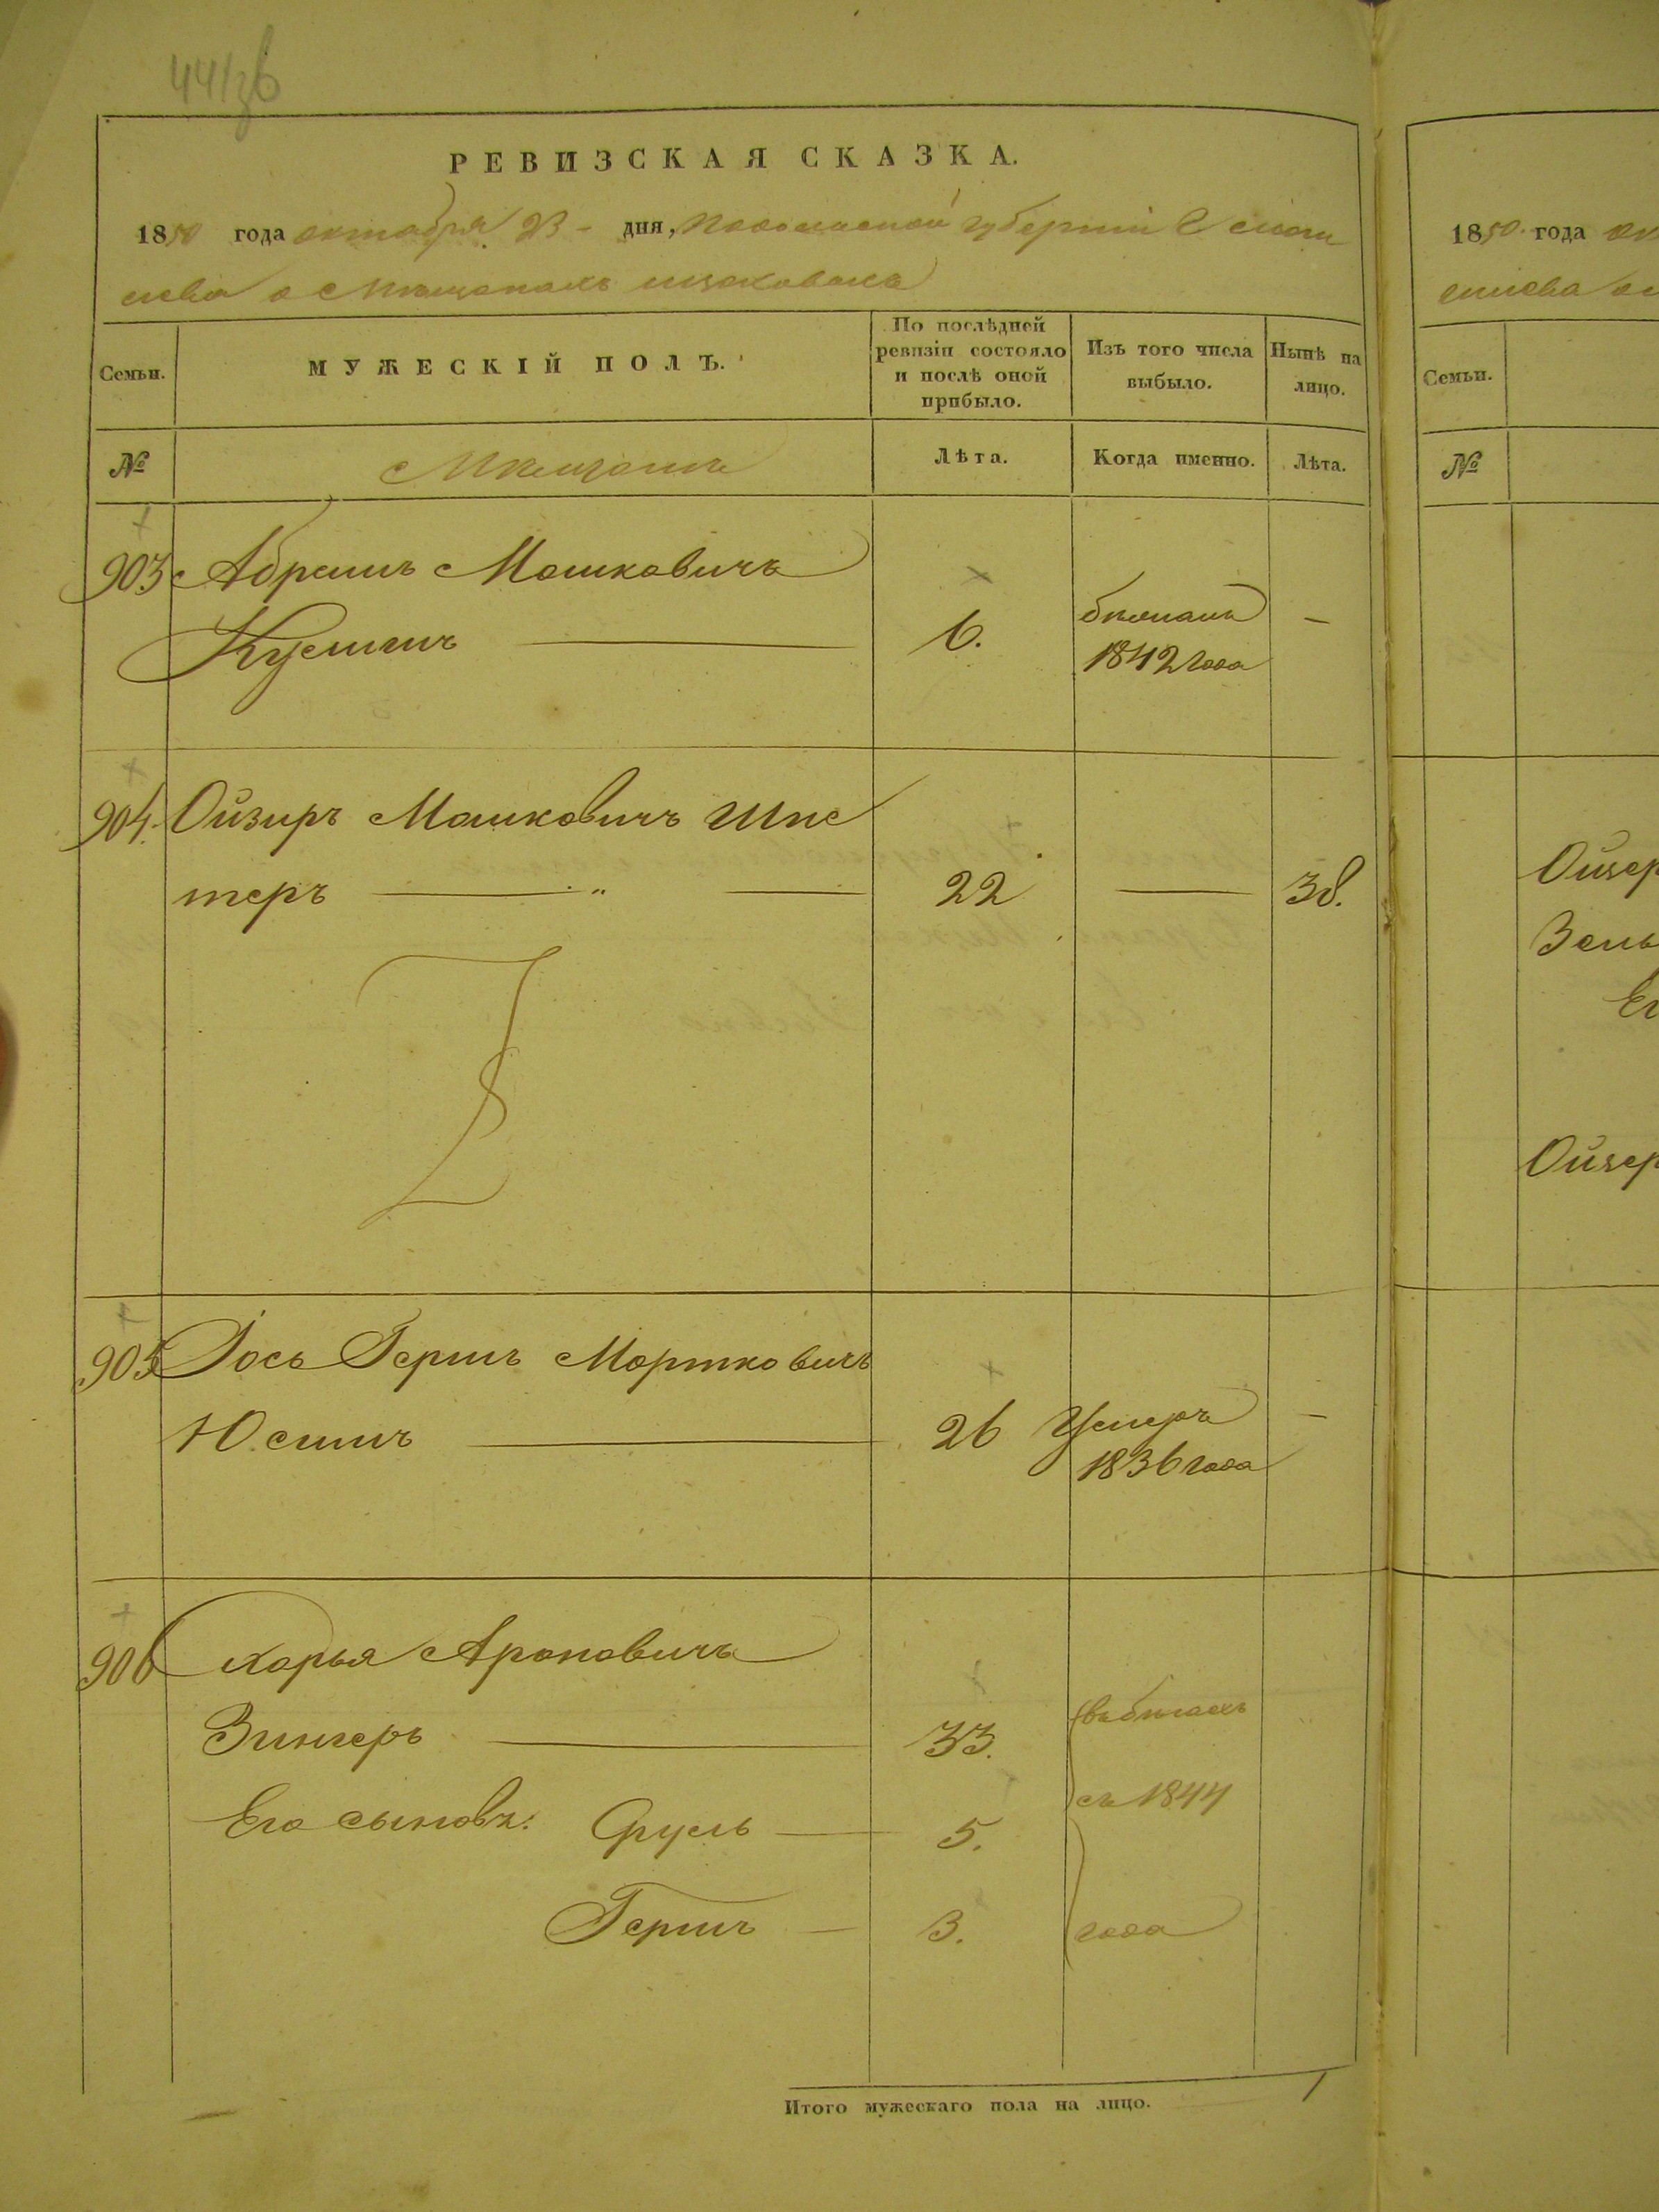 РЕВИЗСКАЯ СКАЗКА.
1850 года октября 23 - дня, Подольской губернии
о мещанахъ
Семьи.
МУЖЕСКІЙ ПОЛЪ.
По послѣдней
ревизіи состояло
и послѣ оной
прибыло.
Изъ того числа
выбыло.
Нынѣ на
лицо.
№
Мещане
Лѣта.
Когда именно.
Лѣта.
903 Абрамъ Мошковичъ
6. 1842 года -
904. Ойзиръ Мошковичъ Шпс
теръ 22 38.
905 Іось Гершъ Мортковичъ
26 Умеръ -
1836 года
906 Харья Ароновичъ
Зингеръ 33. въ бѣгахъ
съ 1844
Его сыновя: Сруль 5.
Гершъ 3. года
Итого мужескаго пола на лицо. 1
1850. года
Семьи.
№